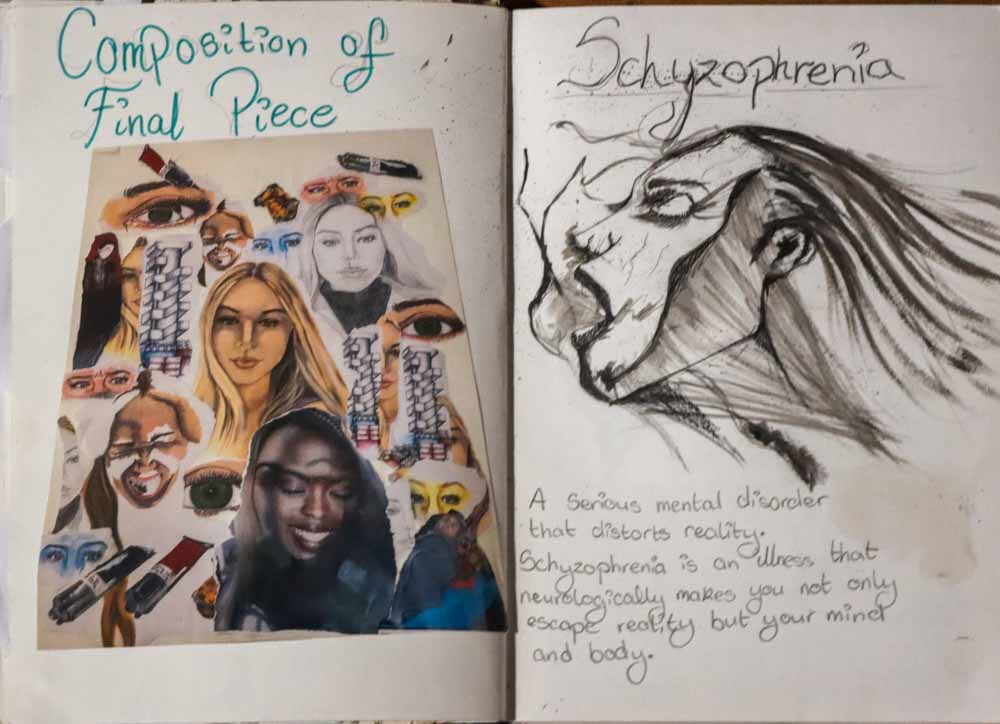 Composition of
Final Piece
Schyzophrenia
A serious mental disorder
that distorts reality.
Schyzophrenia is an illness that
neurologically makes you not only
escape reality but your mind
and body.